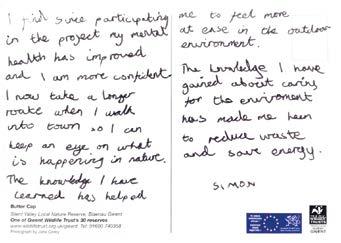 I find since participating
in the project my mental
health has improved
and I am more confident
I now take a longer
route when I walk
into town so I can
keep an eye on what
is happening in nature.
The knowledge I have
learned has helped
Butter Cup
Silent Valley Local Nature Reserve, Blaenau Gwent
One of Gwent Wildlife Trust's 30 reserves
www.wildlifetrust.org.uk/gwent Tel: 01600 740358
me to feel more
at ease in the outdoor
environment.
The knowledge I have
gained about caring
for the enviroment
has made me keen
to reduce waste
and save energy.
SIMON